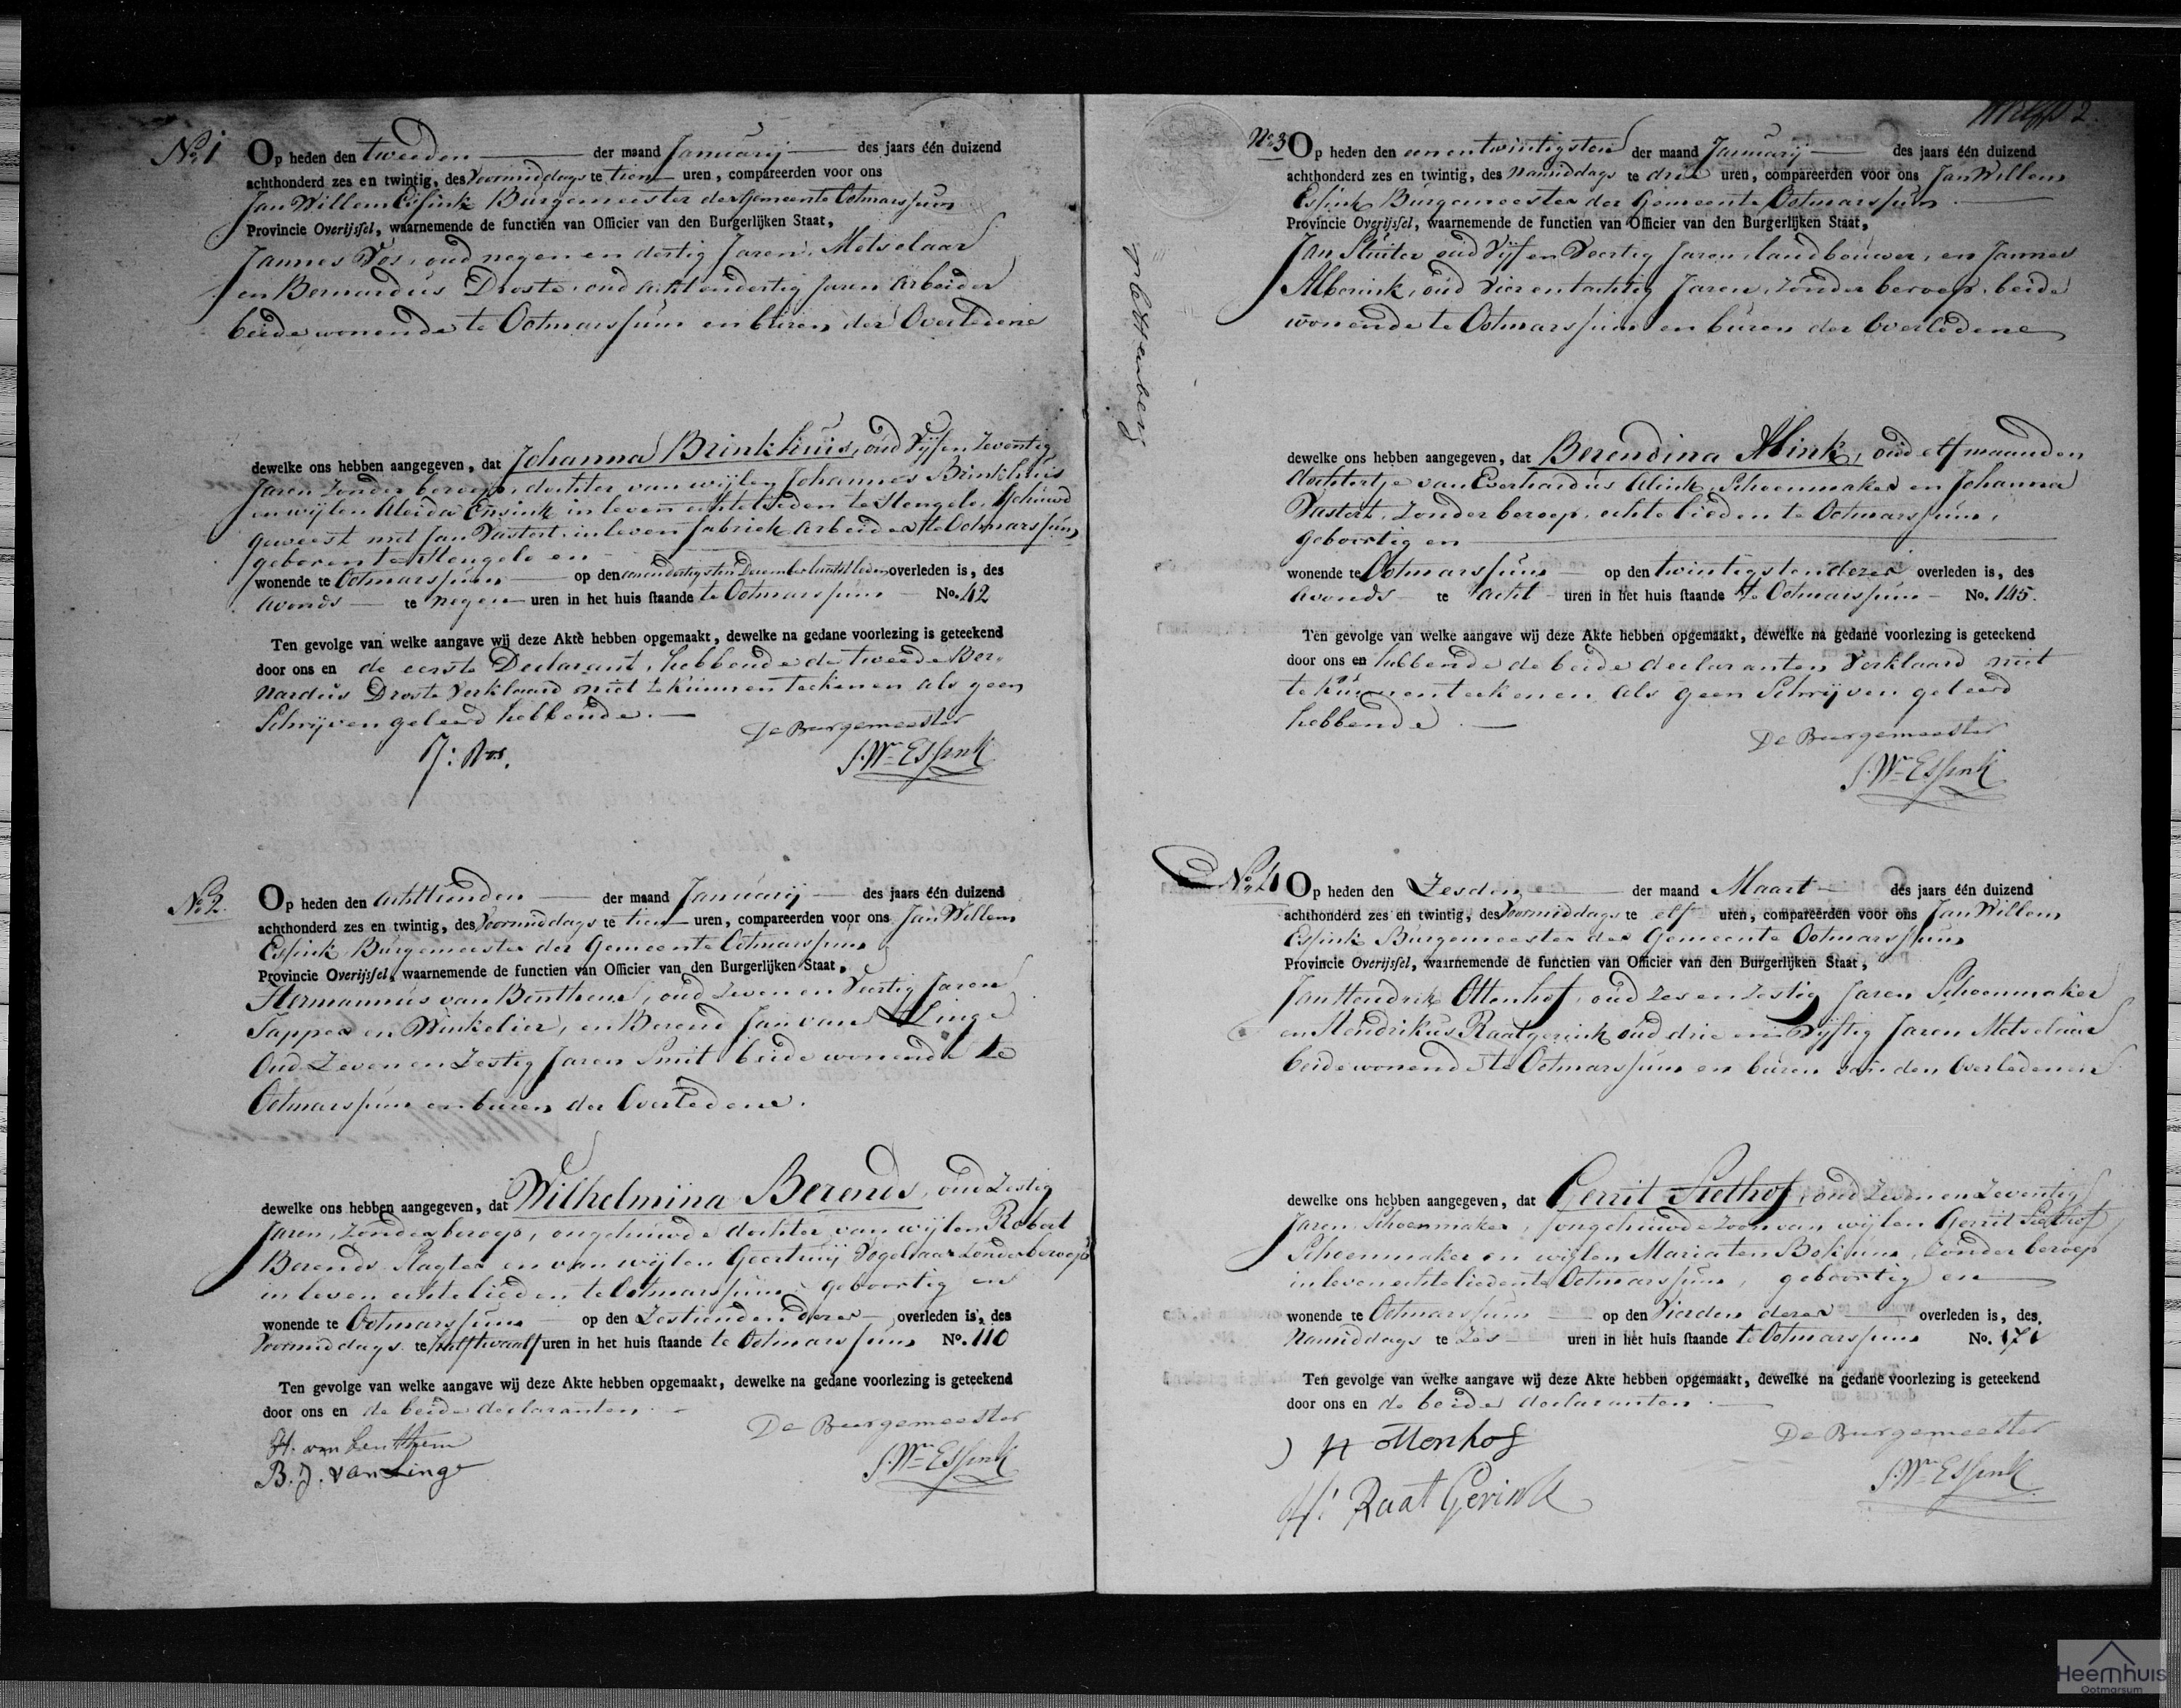 No. 1
Op heden den tweeden der maand Januarij des jaars één duizend
achthonderd zes en twintig, des Voormiddags te tien uren, compareerden voor ons
Jan Willem Essink Burgemeester der Gemeente Ootmarssum
Provincie Overijssel, waarnemende de functien van Officier van den Burgerlijken Staat,
Jannes Vos, oud negen en dertig Jaren, Metselaar
en Bernardus Droste, oud acht en dertig Jaren Arbeider
beide wonende te Ootmarssum en buren der Overledene
dewelke ons hebben aangegeven, dat Johanna Brinkhuis, oud Vijf en Zeventig
Jaren zonder beroep, dochter van wijlen Johannes Brinkhuis
en wijlen Aleida Ensink in leven echtelieden te Hengelo, Gehuwd
geweest met Jan Vastert, in leven fabriek Arbeider te Ootmarssum
geboren te Hengelo en
wonende te Ootmarssum op den een en dertigsten December laatstleden overleden is, des
Avonds te negen uren in het huis staande te Ootmarssum No. 42
Ten gevolge van welke aangave wij deze Akte hebben opgemaakt, dewelke na gedane voorlezing is geteekend
door ons en de eerste Declarant, hebbende de tweede Ber-
nardus Droste Verklaard niet te kunnen teekenen als geen
Schrijven geleerd hebbende.
De Burgemeester
J: Vos.
J. Wm Essink
No. 2.
Op heden den Achttienden der maand Januarij des jaars één duizend
achthonderd zes en twintig, des Voormiddags te tien uren, compareerden voor ons Jan Willem
Essink Burgemeester der Gemeente Ootmarssum
Provincie Overijssel, waarnemende de functien van Officier van den Burgerlijken Staat,
Hermannus van Benthem, oud Zeven en Veertig Jaren
Tapper en Winkelier, en Berend Jan van Linge
Oud Zeven en Zestig Jaren Smit beide wonende te
Ootmarssum en buren der Overledene.
dewelke ons hebben aangegeven, dat Wilhelmina Berends, oud Zestig
Jaren, Zonder beroep, ongehuwde dochter van wijlen Robert
Berends Slagter en van wijlen Geertruij Vogelaar Zonder beroep
in leven echtelieden te Ootmarssum, geboortig en
wonende te Ootmarssum op den Zestienden dezer overleden is, des
Voormiddags te half twaalf uren in het huis staande te Ootmarssum No. 110
Ten gevolge van welke aangave wij deze Akte hebben opgemaakt, dewelke na gedane voorlezing is geteekend
door ons en de beide declaranten.
De Burgemeester
H. van Benthem
B. J. van Linge
J. Wm Essink
2.
No. 3
Op heden den een en twintigsten der maand Januarij des jaars één duizend
achthonderd zes en twintig, des Namiddags te drie uren, compareerden voor ons Jan Willem
Essink Burgemeester der Gemeente Ootmarssum
Provincie Overijssel, waarnemende de functien van Officier van den Burgerlijken Staat,
Jan Sluiter oud Vijf en Veertig Jaren, landbouwer, en Jannes
Alberink, oud Vier en tachtig Jaren, Zonder beroep, beide
wonende te Ootmarssum en buren der Overledene
dewelke ons hebben aangegeven, dat Berendina Alink, oud elf maanden
dochtertje van Everhardus Alink, Schoenmaker en Johanna
Vastert, Zonder beroep, echtelieden te Ootmarssum,
geboortig en
wonende te Ootmarssum op den twintigsten dezer overleden is, des
Avonds te acht uren in het huis staande te Ootmarssum No. 145.
Ten gevolge van welke aangave wij deze Akte hebben opgemaakt, dewelke na gedane voorlezing is geteekend
door ons en hebbende de beide declaranten Verklaard niet
te kunnen teekenen als geen Schrijven geleerd
hebbende.
De Burgemeester
J. Wm Essink
No. 4
Op heden den Zesden der maand Maart des jaars één duizend
achthonderd zes en twintig, des Voormiddags te elf uren, compareerden voor ons Jan Willem
Essink Burgemeester der Gemeente Ootmarssum
Provincie Overijssel, waarnemende de functien van Officier van den Burgerlijken Staat,
Jan Hendrik Ottenhof, oud Zes en Zestig Jaren Schoenmaker
en Hendrikus Raatgerink oud drie en Vijftig Jaren Metselaar
beide wonende te Ootmarssum en buren van den Overledenen
dewelke ons hebben aangegeven, dat Gerrit Sielhof, oud Zeven en Zeventig
Jaren Schoenmaker, ongehuwde Zoon van wijlen Gerrit Sielhof
Schoenmaker en wijlen Maria ten Bokum, Zonder beroep
in leven echtelieden te Ootmarssum, geboortig en
wonende te Ootmarssum op den Vierden dezer overleden is, des
Namiddags te Zes uren in het huis staande te Ootmarssum No. 171
Ten gevolge van welke aangave wij deze Akte hebben opgemaakt, dewelke na gedane voorlezing is geteekend
door ons en de beide declaranten.
De Burgemeester
J H Ottenhof
H: Raat Gerink
J. Wm Essink
Heemhuis
Ootmarsum